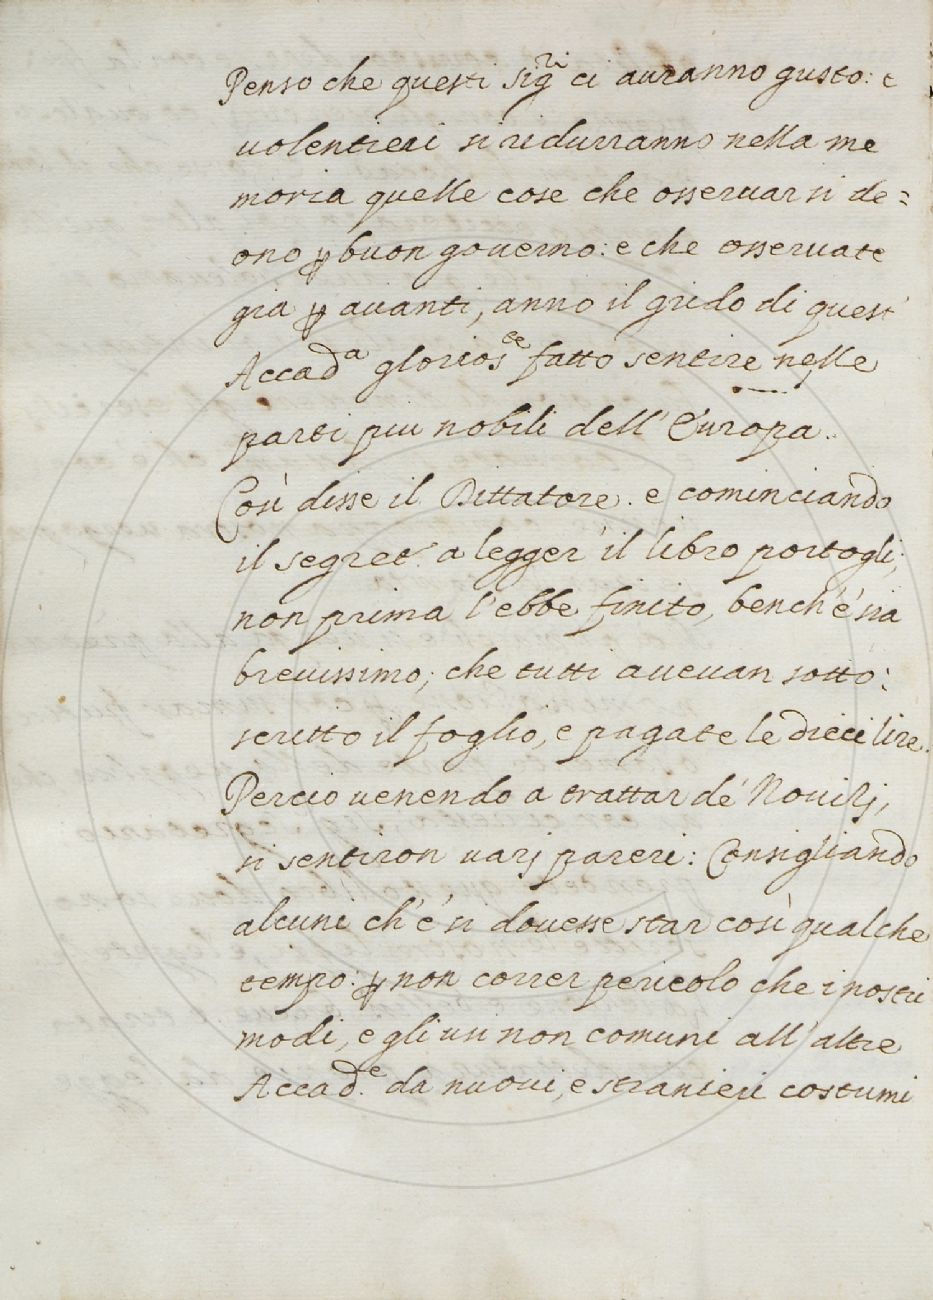 Penso che questi sig.ri ci auranno gusto: e
uolentieri si ridurranno nella me
moria quelle cose che osseruar si de=
ono ꝑ buon gouerno: e che osseruate
già ꝑ auanti, anno il grido di quest'
Accad.a glorios.te fatto sentire nelle
parti piu nobili dell'Europa.
Così disse il Dittatore. e cominciando
il segret.o a legger il libro portogli;
non prima l'ebbe finito, bench'é sia
breuissimo; che tutti aueuan sotto:
scritto il foglio, e pagate le dieci lire.
Percio uenendo a trattar de' Nouizj,
si sentiron uarj pareri: Consigliando
alcuni ch'é si douesse star così qualche
tempo: ꝑ non correr pericolo che i nostri
modi, e gli usi non comuni all'altre
Accad.e da nuoui, e stranieri costumi